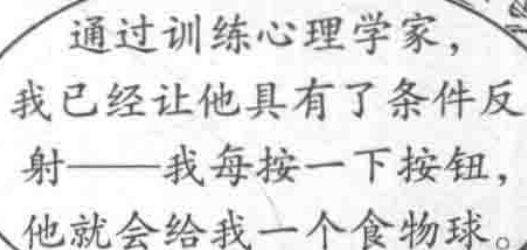 通过训练心理学家，
我已经让他具有了条件反
射——我每按一下按钮，
他就会给我一个食物球。